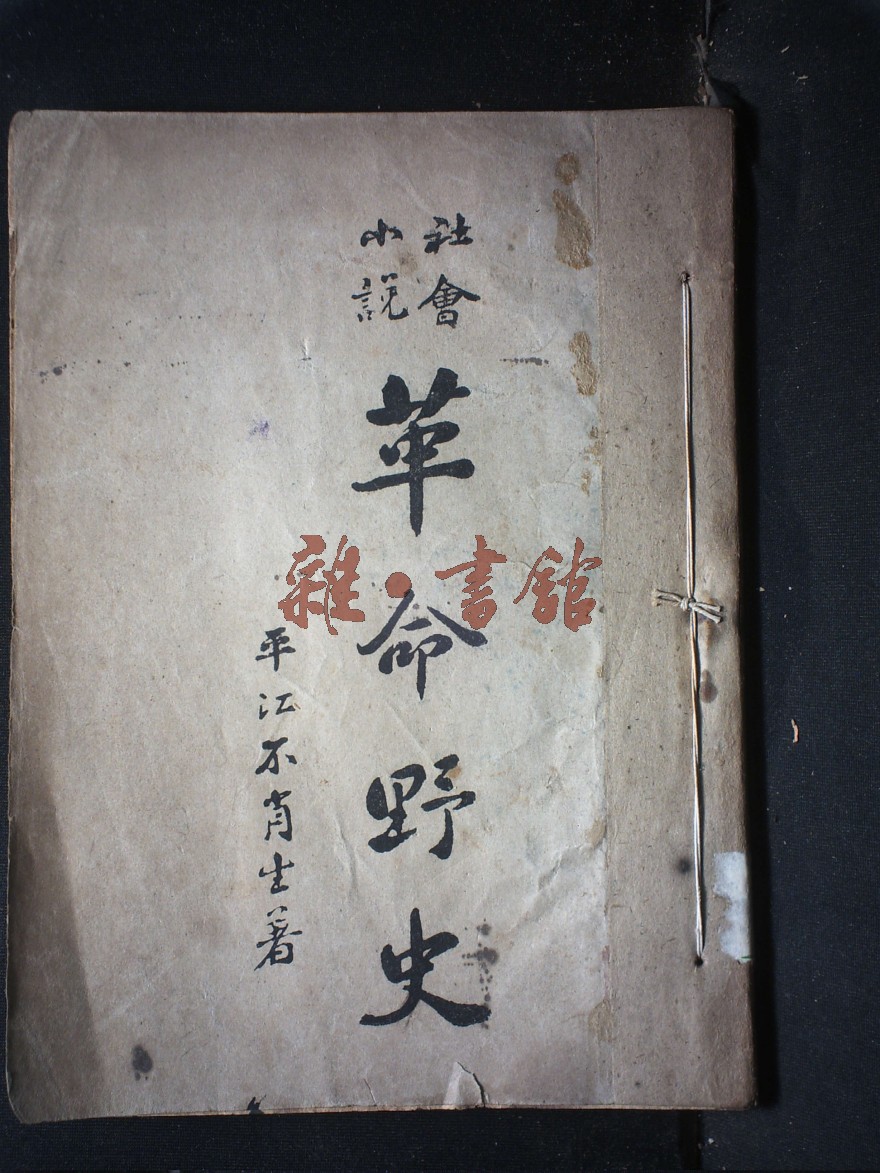 社會
小説
革命野史
平江不肖生著
雜·書館